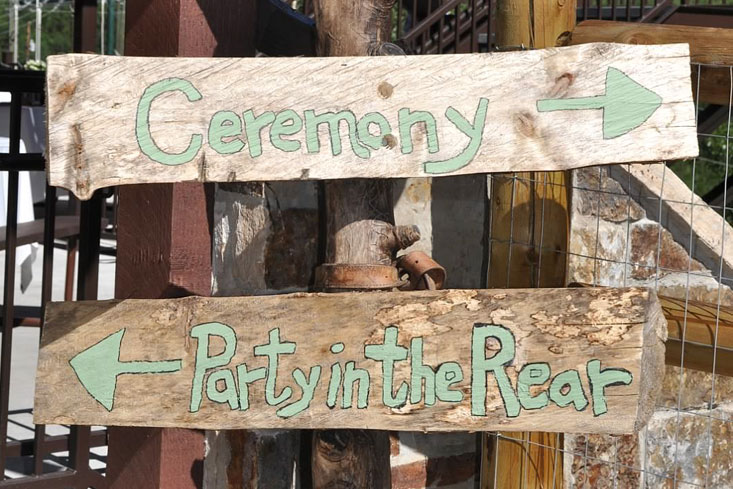 Ceremony
Party in the Rear